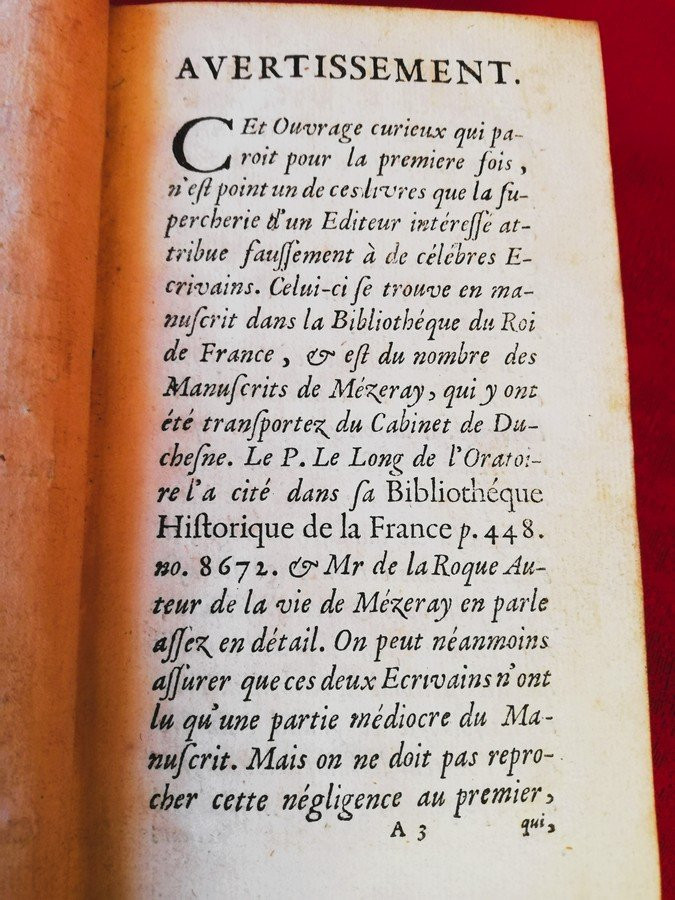 AVERTISSEMENT.
CEt Ouvrage curieux qui pa-
roit pour la premiere fois,
n'eſt point un de ces livres que la ſu-
percherie d'un Editeur intéreſſé at-
tribue fauſſement à de célébres E-
crivains. Celui-ci ſe trouve en ma-
nuſcrit dans la Bibliothéque du Roi
de France, & eſt du nombre des
Manuſcrits de Mézeray, qui y ont
été tranſportez du Cabinet de Du-
cheſne. Le P. Le Long de l'Oratoi-
re l'a cité dans ſa Bibliothéque
Hiſtorique de la France p. 448.
no. 8672. & Mr de la Roque Au-
teur de la vie de Mézeray en parle
aſſez en détail. On peut néanmoins
aſſurer que ces deux Ecrivains n'ont
lu qu'une partie médiocre du Ma-
nuſcrit. Mais on ne doit pas repro-
cher cette négligence au premier,
A 3 qui,